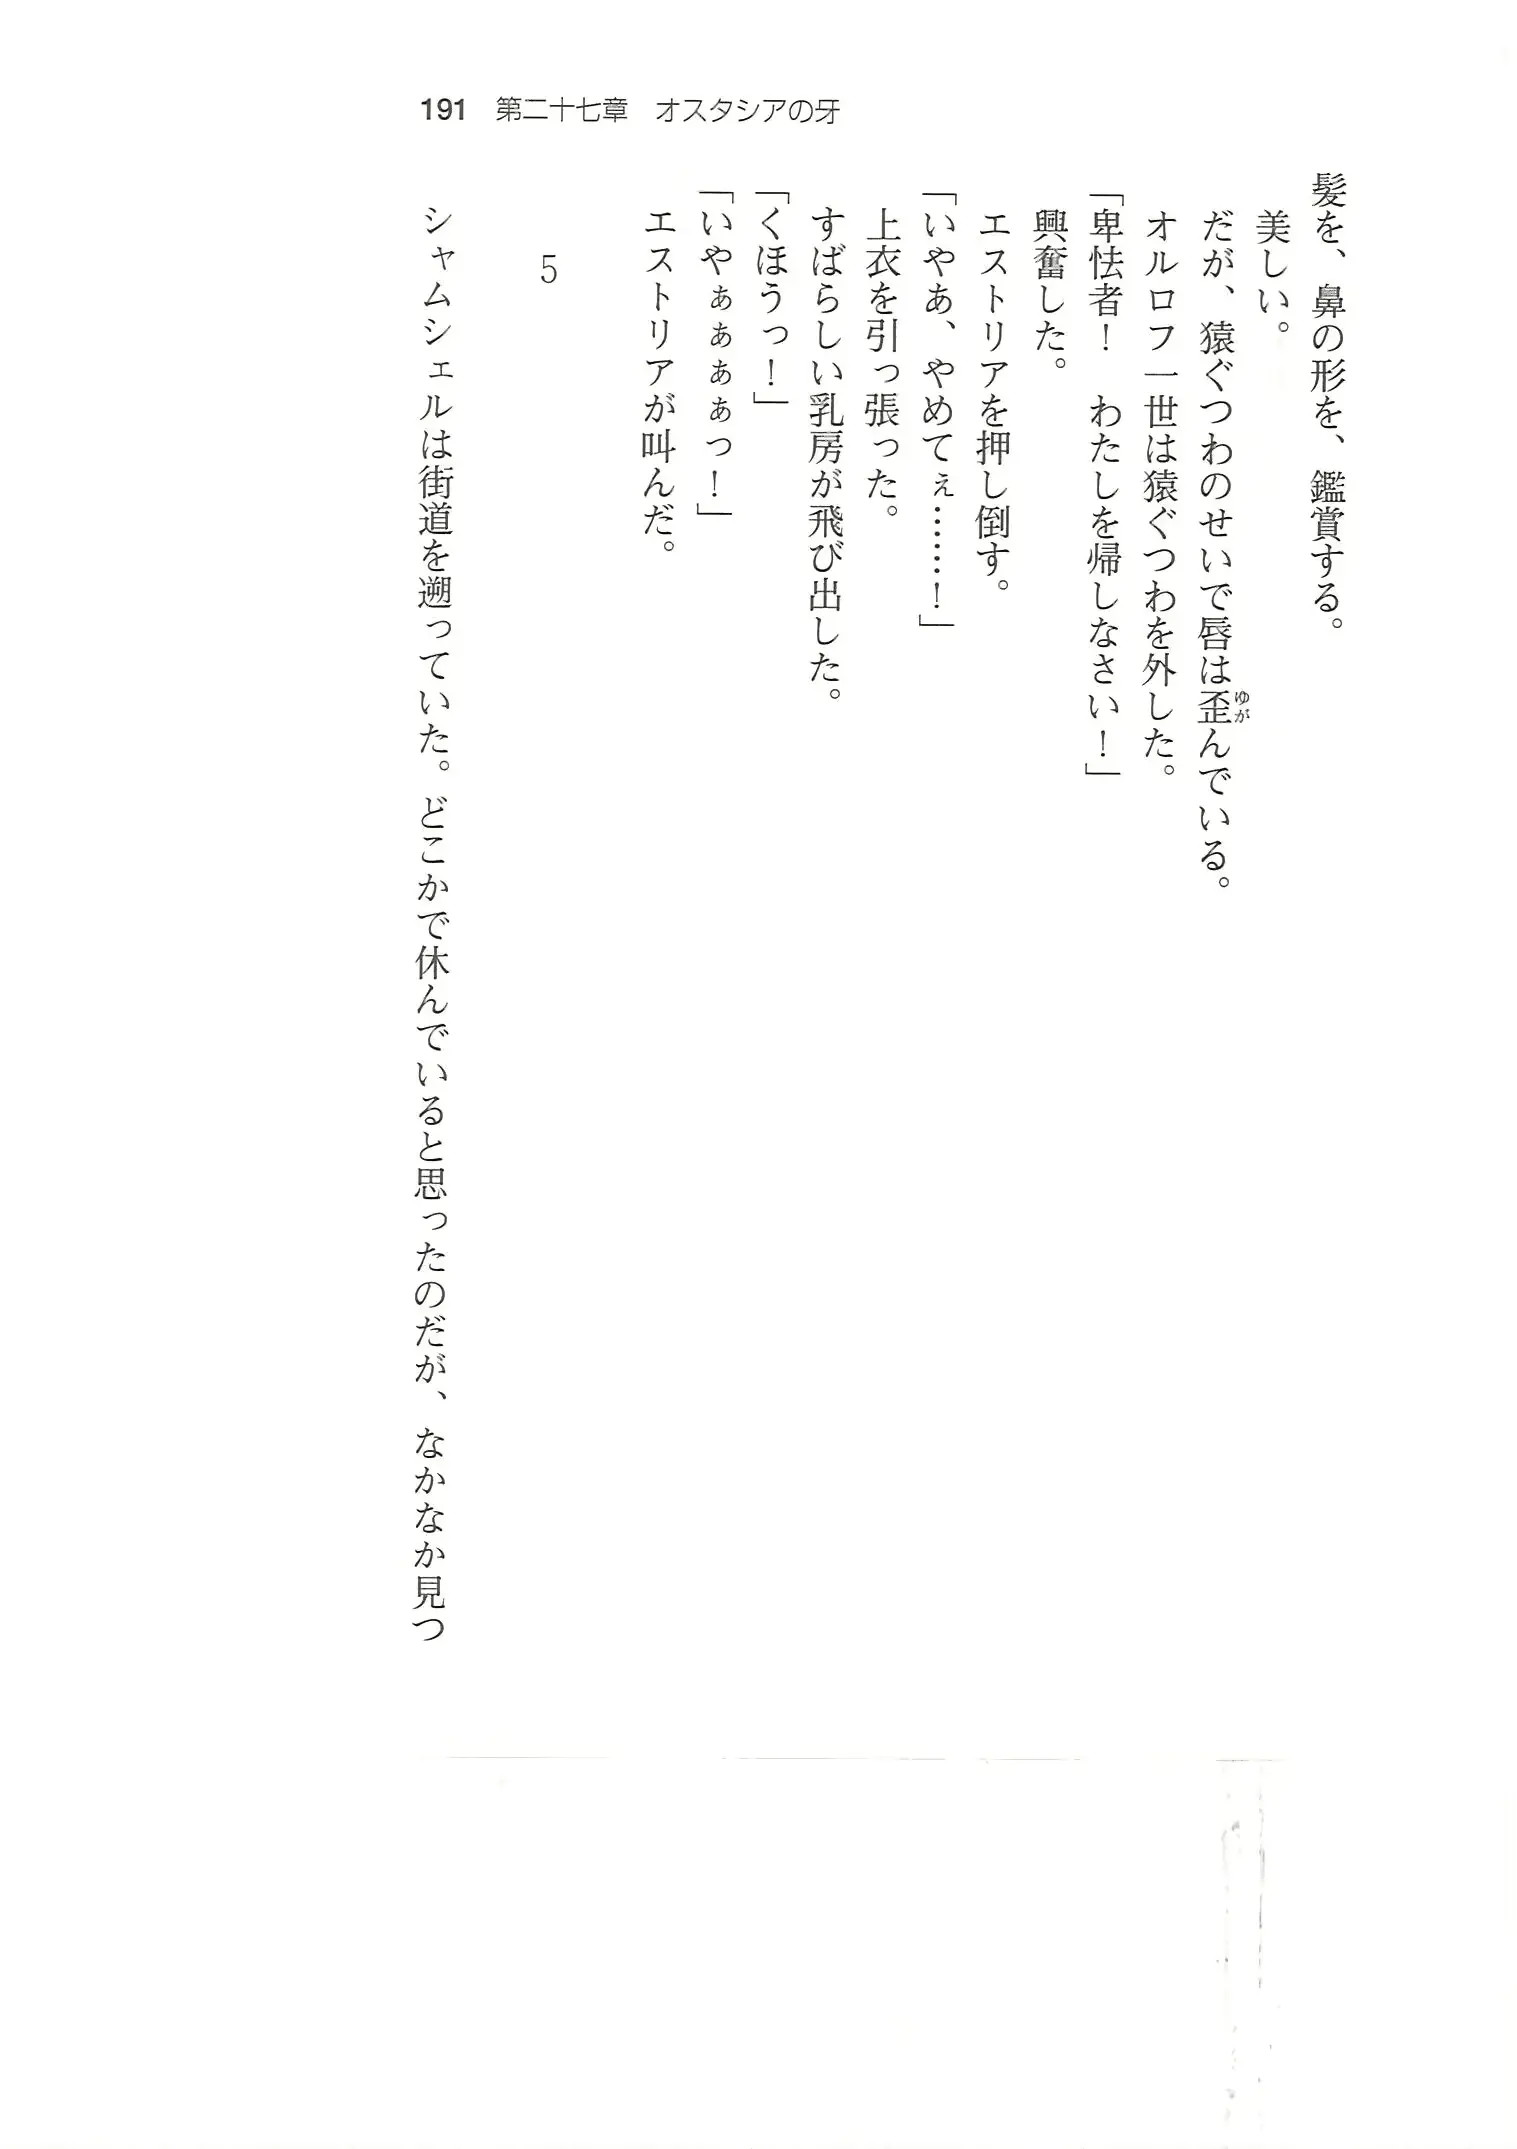 191 第二十七章 オスタシアの牙
髪を、鼻の形を、鑑賞する。
美しい。
だが、猿ぐつわのせいで唇は歪んでいる。
ゆが
オルロフ一世は猿ぐつわを外した。
「卑怯者！　わたしを帰しなさい！」
興奮した。
エストリアを押し倒す。
「いやあ、やめてぇ……！」
上衣を引っ張った。
すばらしい乳房が飛び出した。
「くほうっ！」
「いやぁぁぁぁっ！」
エストリアが叫んだ。
5
シャムシェルは街道を遡っていた。どこかで休んでいると思ったのだが、なかなか見つ